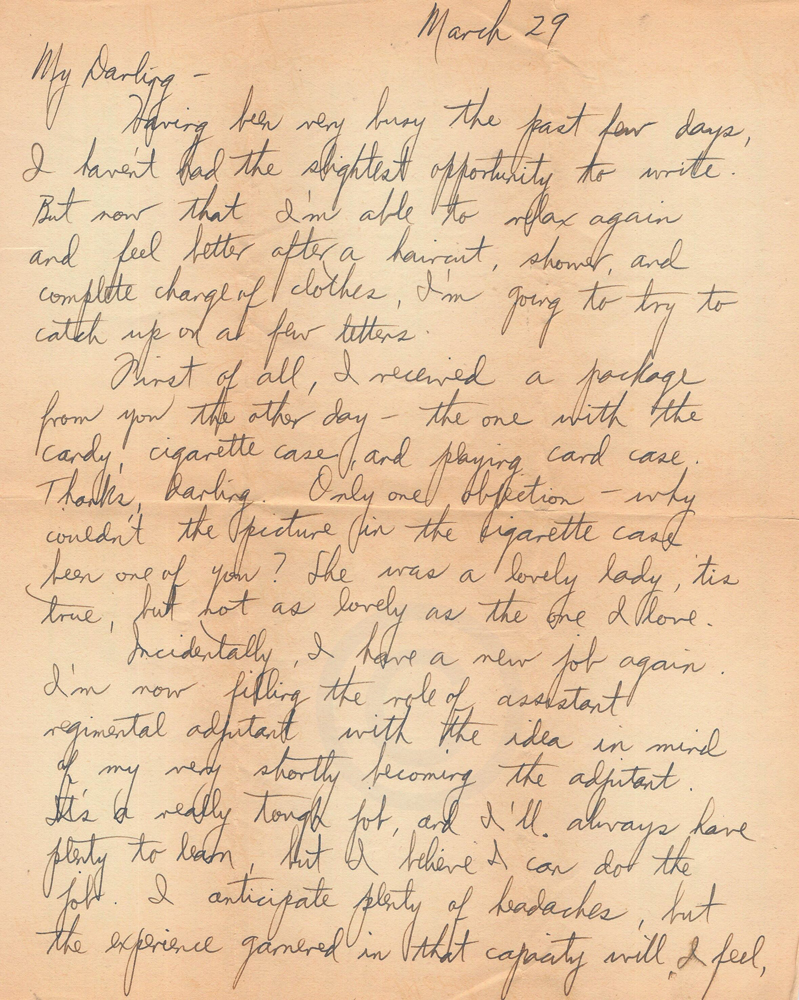 March 29
My Darling –
Having been very busy the past few days,
I haven't had the slightest opportunity to write.
But now that I'm able to relax again
and feel better after a haircut, shower, and
complete change of clothes, I'm going to try to
catch up on a few letters.
First of all, I received a package
from you the other day – the one with the
candy, cigarette case, and playing card case.
Thanks, Darling. Only one objection – why
couldn't the picture in the cigarette case
been one of you? She was a lovely lady, 'tis
true, but not as lovely as the one I love.
Incidentally, I have a new job again.
I'm now filling the role of assistant
regimental adjutant with the idea in mind
of my very shortly becoming the adjutant.
It's a really tough job, and I'll always have
plenty to learn, but I believe I can do the
job. I anticipate plenty of headaches, but
the experience garnered in that capacity will, I feel,